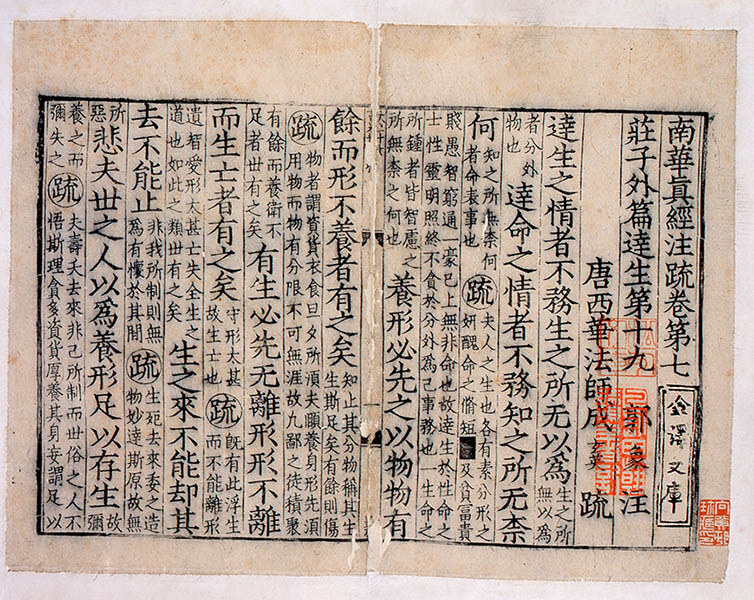 南華真經注疏卷第七
莊子外篇達生第十九 郭象注
唐西華法師成玄英疏
達生之情者不務生之所无以為生之所無以為
者分外物也達命之情者不務知之所无柰
何知之所無柰何者命表事也疏夫人之生也各有素分形之妍醜命之脩短及貧富貴
賤愚智窮通一豪已上無非命也故達生於性命之士性靈明照終不貪於分外為己事務也一生命之
所鍾者皆智慮之所無柰之何也養形必先之以物物有
餘而形不養者有之矣知止其分物稱其生生斯足矣有餘則傷
疏物者謂資貨衣食旦夕所須夫頤養身形先須用物而物有分限不可無涯故凡鄙之徒積聚
有餘而養衛不足者世有之矣有生必先无離形形不離
而生亡者有之矣守形太甚故生亡也疏既有此浮生而不能離形
遺智愛形太甚亡失全生之道也如此之類世有之矣生之來不能却其
去不能止非我所制則無為有懷於其間疏生死去來委之造物妙達斯原故無
所惡悲夫世之人以為養形足以存生故彌
養之而彌失之疏夫壽夭去來非己所制而世俗之人不悟斯理貪多資貨厚養其身妄謂足以
金澤文庫